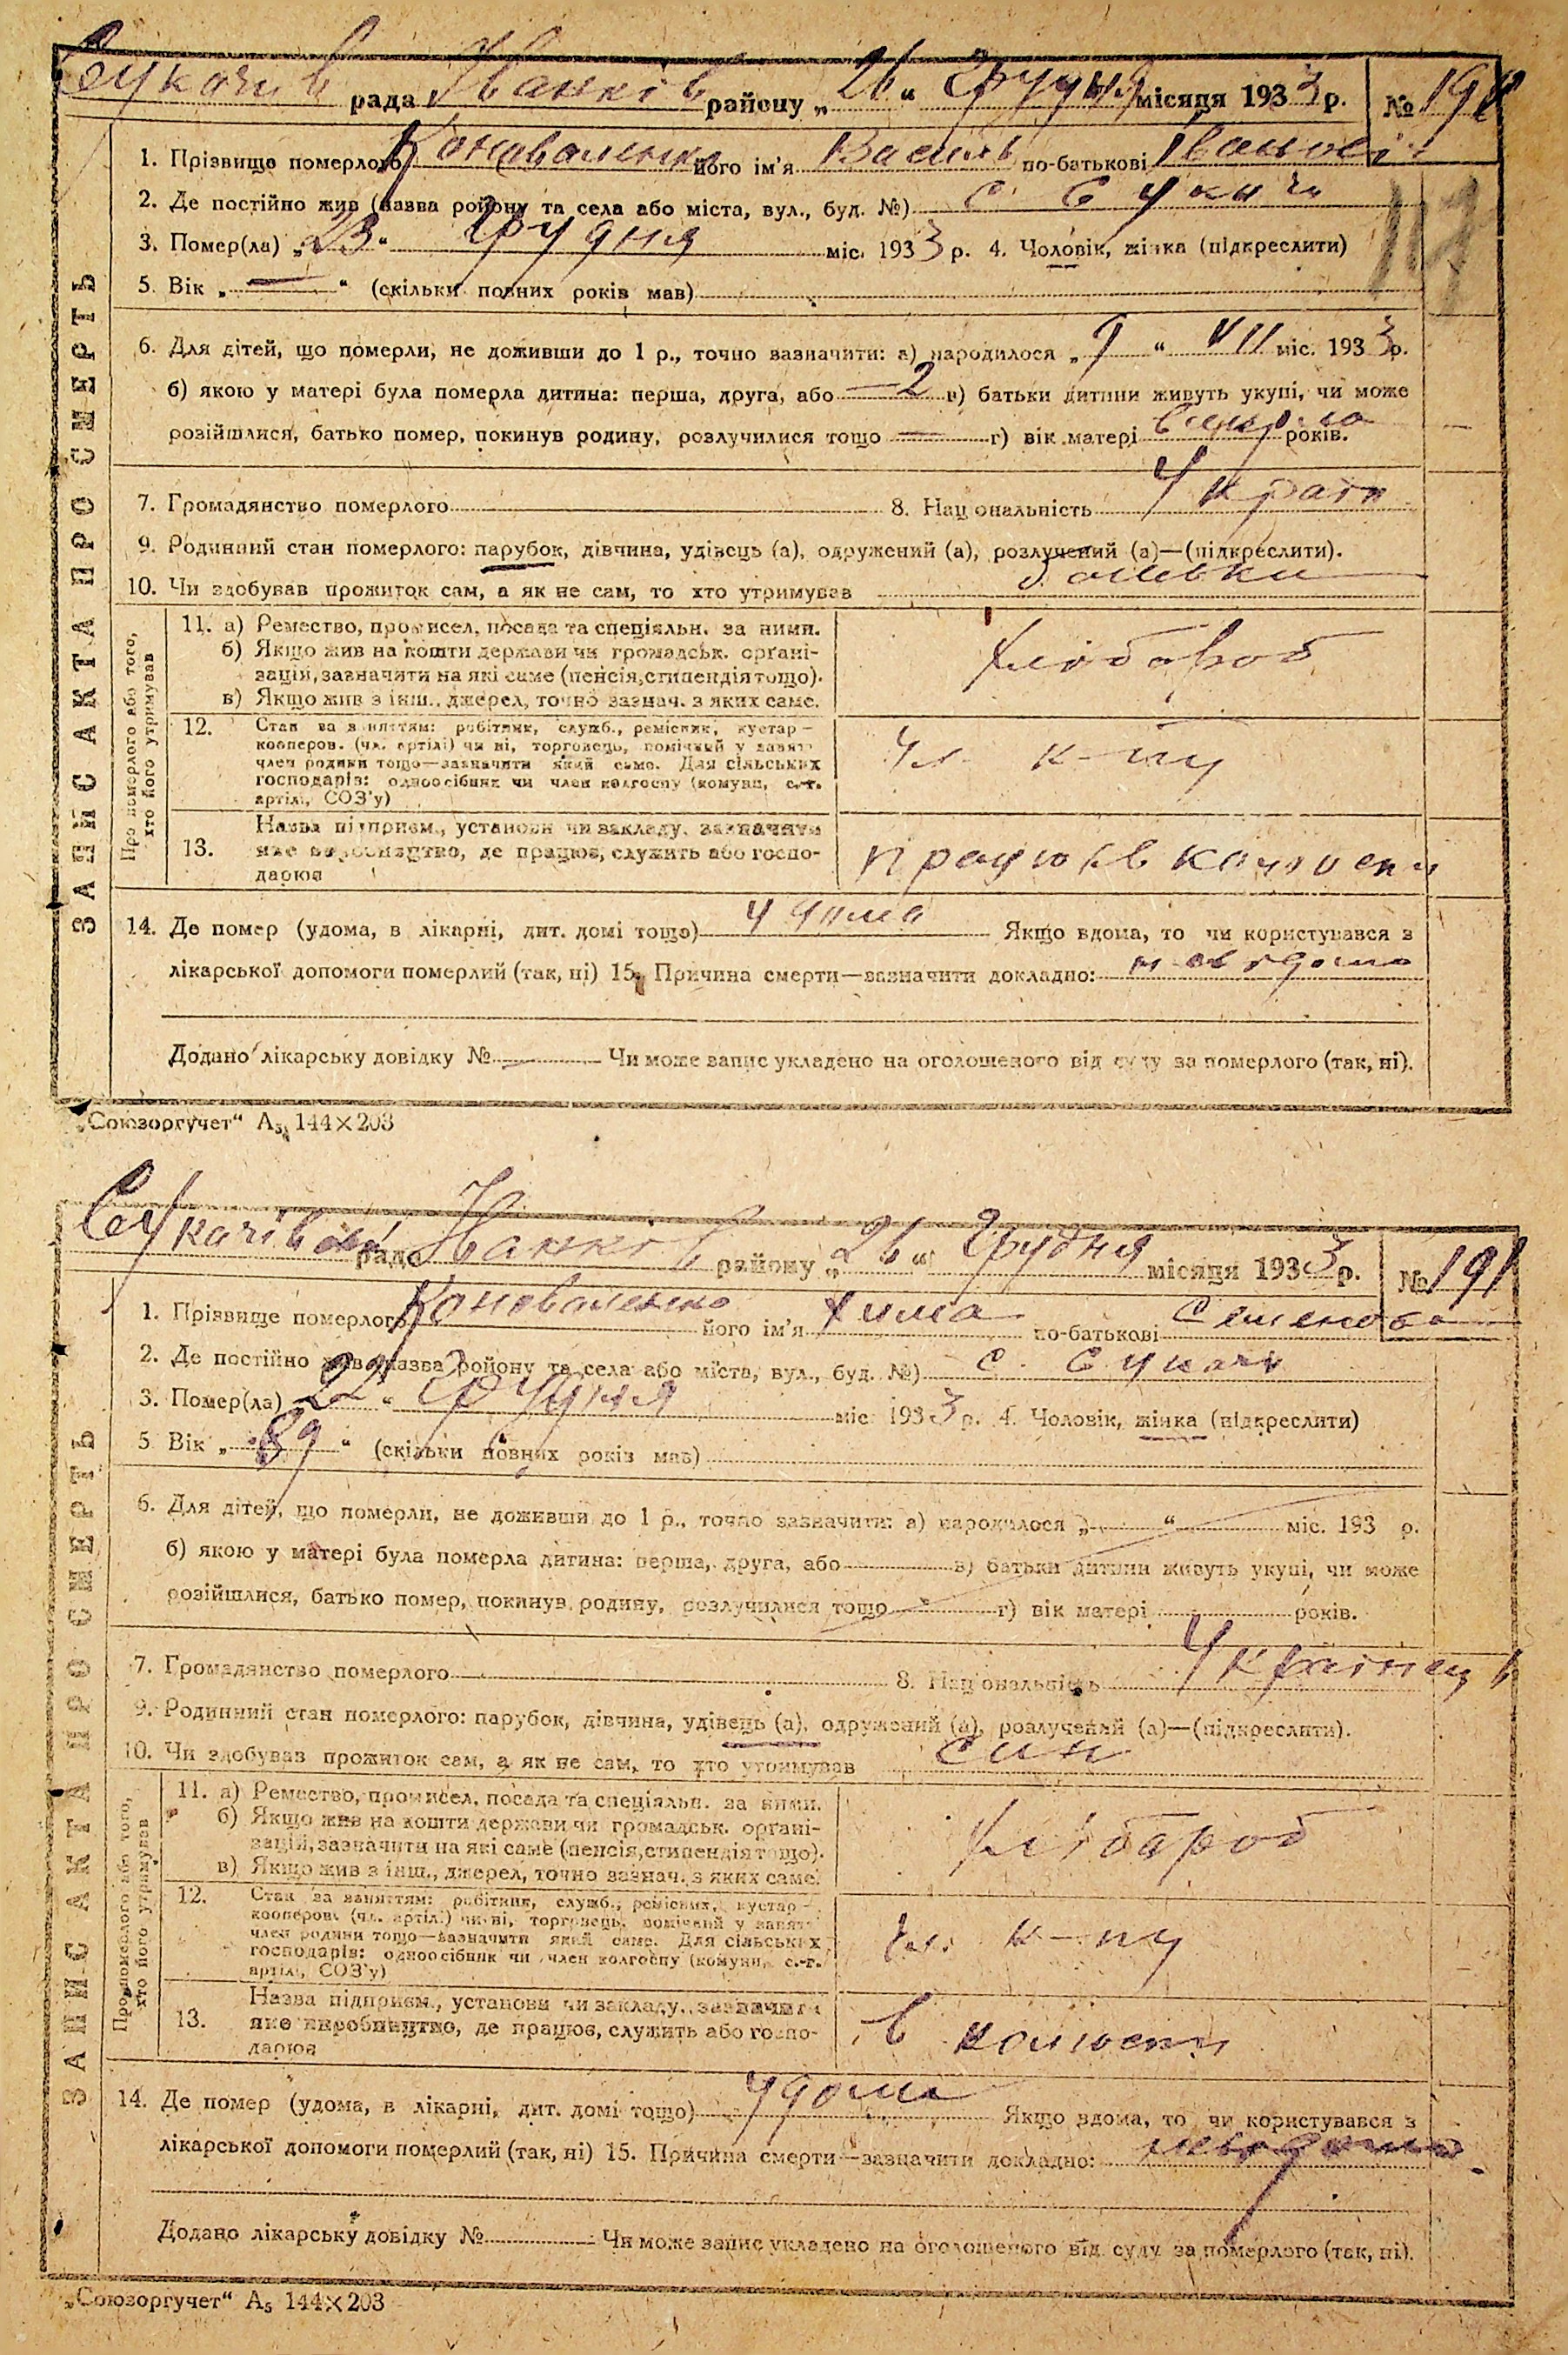 рада Іванків району „26“ Грудня місяця 1933 р. № 19
1. Прізвище померлого Коноваленко його ім'я Василь по-батькові Іванові
2. Де постійно жив (назва району та села або міста, вул., буд. №) с. Сукачі
3. Помер(ла) „23“ Грудня міс. 1933 р. 4. Чоловік, жінка (підкреслити)
5. Вік „—“ (скільки повних років мав)
6. Для дітей, що померли, не доживши до 1 р., точно зазначити: а) народилося „ “ VII міс. 1933 р.
б) якою у матері була померла дитина: перша, друга, або —2 в) батьки дитини живуть укупі, чи може
розійшлися, батько помер, покинув родину, розлучилися тощо — г) вік матері років.
7. Громадянство померлого 8. Національність Україн
9. Родинний стан померлого: парубок, дівчина, удівець (а), одружений (а), розлучений (а)—(підкреслити).
10. Чи здобував прожиток сам, а як не сам, то хто утримував батьки
ЗАПИС АКТА ПРО СМЕРТЬ
Про померлого або того,
хто його утримував
11. а) Ремество, промисел, посада та спеціяльн. за ними.
б) Якщо жив на кошти держави чи громадськ. орґані-
зацій, зазначити на які саме (пенсія, стипендія тощо).
в) Якщо жив з інш., джерел, точно зазнач. з яких саме.
хлібороб
12. Стан за заняттям: робітник, служб., ремісник, кустар-
кооперов. (чл. артілі) чи ні, торговець, помічний у занят.
член родини тощо—зазначити який саме. Для сільських
господарів: одноосібник чи член колгоспу (комуни, с.-г.
артілі, СОЗ'у)
чл. к-пу
13. Назва підприєм., установи чи закладу, зазначити
яке виробництво, де працює, служить або госпо-
дарює
працює в колгоспі
14. Де помер (удома, в лікарні, дит. домі тощо) удома Якщо вдома, то чи користувався з
лікарської допомоги померлий (так, ні) 15. Причина смерти—зазначити докладно: невідомо
Додано лікарську довідку № — Чи може запис укладено на оголошеного від суду за померлого (так, ні).
„Союзоргучет“ А₅ 144×203
Сукачівська рада Іванків району „26“ Грудня місяця 1933 р. № 191
1. Прізвище померлого Коноваленко його ім'я Хима по-батькові Семенова
2. Де постійно жив (назва району та села або міста, вул., буд. №) с. Сукачі
3. Помер(ла) „22“ Грудня міс. 1933 р. 4. Чоловік, жінка (підкреслити)
5. Вік „89“ (скільки повних років мав)
6. Для дітей, що померли, не доживши до 1 р., точно зазначити: а) народилося „ “ міс. 193 р.
б) якою у матері була померла дитина: перша, друга, або в) батьки дитини живуть укупі, чи може
розійшлися, батько помер, покинув родину, розлучилися тощо г) вік матері років.
7. Громадянство померлого 8. Національність
9. Родинний стан померлого: парубок, дівчина, удівець (а), одружений (а), розлучений (а)—(підкреслити).
10. Чи здобував прожиток сам, а як не сам, то хто утримував син
ЗАПИС АКТА ПРО СМЕРТЬ
Про померлого або того,
хто його утримував
11. а) Ремество, промисел, посада та спеціяльн. за ними.
б) Якщо жив на кошти держави чи громадськ. орґані-
зацій, зазначити на які саме (пенсія, стипендія тощо).
в) Якщо жив з інш., джерел, точно зазнач. з яких саме.
хлібороб
12. Стан за заняттям: робітник, служб., ремісник, кустар-
кооперов. (чл. артілі) чи ні, торговець, помічний у занят.
член родини тощо—зазначити який саме. Для сільських
господарів: одноосібник чи член колгоспу (комуни, с.-г.
артілі, СОЗ'у)
чл. к-пу
13. Назва підприєм., установи чи закладу, зазначити
яке виробництво, де працює, служить або госпо-
дарює
в колгоспі
14. Де помер (удома, в лікарні, дит. домі тощо) удома Якщо вдома, то чи користувався з
лікарської допомоги померлий (так, ні) 15. Причина смерти—зазначити докладно: невідомо
Додано лікарську довідку № Чи може запис укладено на оголошеного від суду за померлого (так, ні).
„Союзоргучет“ А₅ 144×203